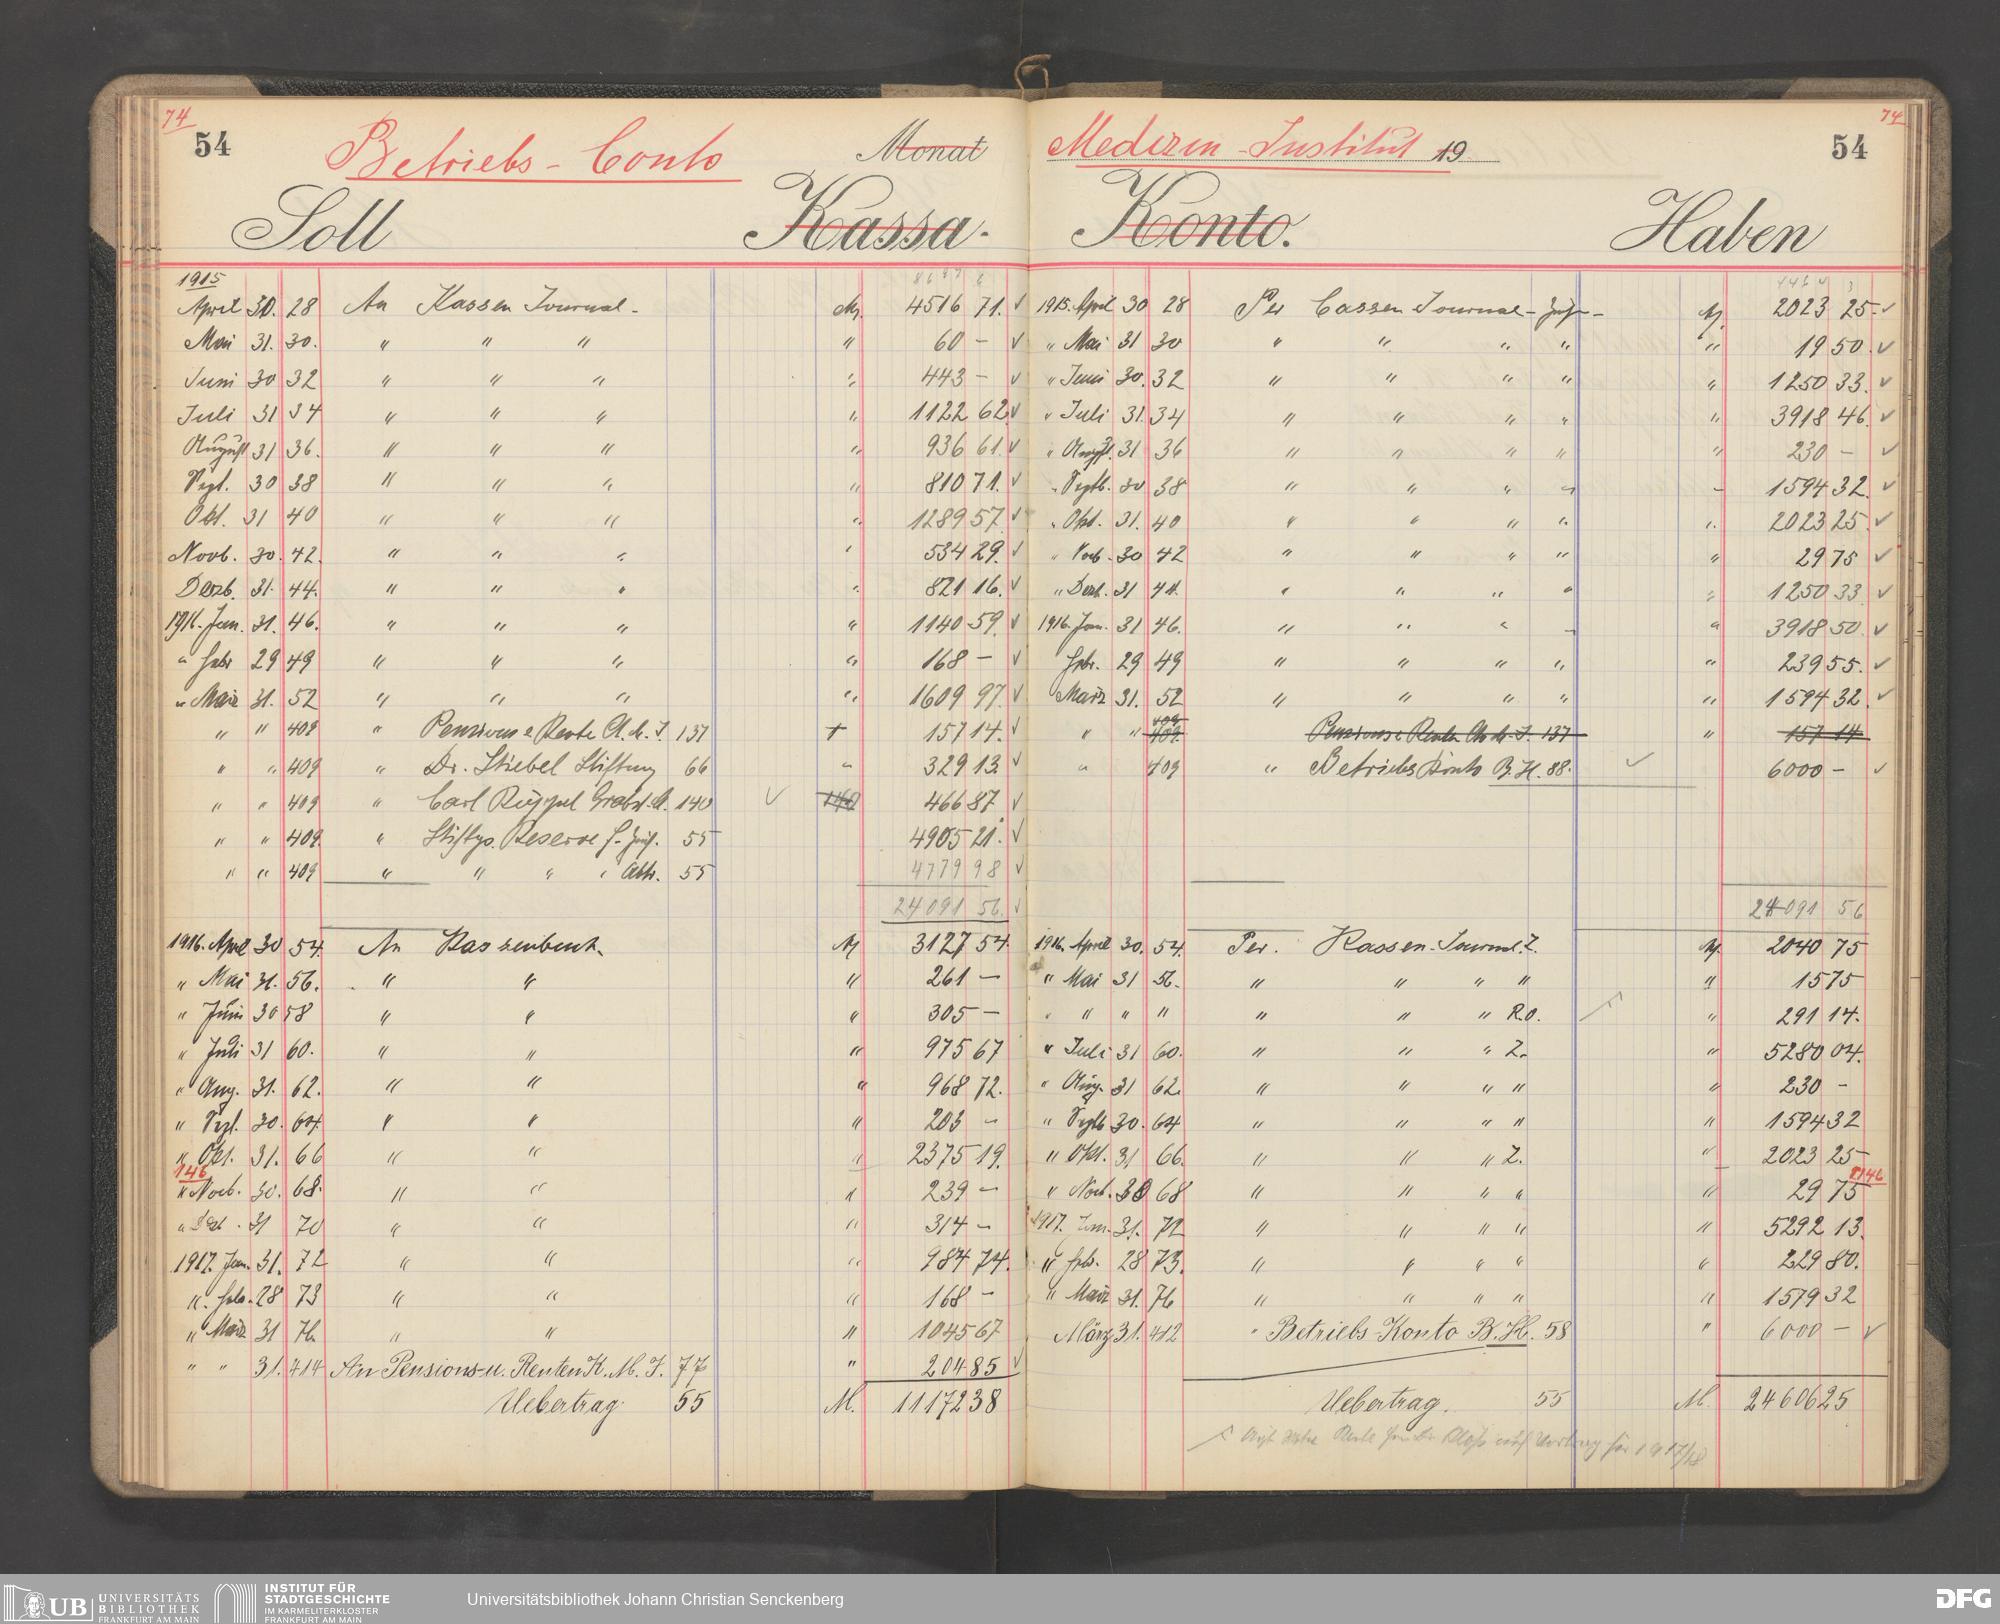 74
54 Betriebs-Conto Monat
Soll Kassa.
1915
April 30. 28 An Kassen Journal M. 4516 71. ✓
Mai 31. 30. " " " " 60 — ✓
Juni 30 32 " " " " 443 — ✓
Juli 31 34 " " " " 1122 62. ✓
August 31 36. " " " " 936 61. ✓
Sept. 30 38 " " " " 810 71. ✓
Okt. 31 40 " " " " 1289 57. ✓
Novb. 30. 42. " " " " 534 29. ✓
Dezb. 31. 44. " " " " 821 16. ✓
1916. Jan. 31. 46. " " " " 1140 59. ✓
" Febr 29 49 " " " " 168 — ✓
" März 31. 52 " " " " 1609 97. ✓
" " 409 " Pensions & Rente 137 157 14. ✓
" " 409 " Dr. Stiebel Stiftung 66 " 329 13. ✓
" " 409 " Carl Rüppel 140 ✓ 140 466 87. ✓
" " 409. " Stiftgs. Reserve 55 4905 21. ✓
" " 409 " " " " 55 4779 98 ✓
24091 56. ✓
1916. April 30 54. An Kassenbuch. M 3127 54
" Mai 31. 56. " " " 261 —
" Juni 30 58 " " " 305 —
" Juli 31 60. " " " 975 67
" Aug. 31. 62. " " " 968 72.
" Sept. 30. 64. " " " 203 —
" Okt. 31. 66 " " " 2375 19.
146
" Novb. 30. 68. " " " 239 —
" Dez. 31 70 " " " 314 —
1917. Jan. 31. 72 " " " 984 74.
" Feb. 28 73 " " " 168 —
" März 31 76 " " " 1045 67
" " 31. 414 An Pensions-u. Renten K. M. I. 77 " 204 85 ✓
Uebertrag. 55 M. 11172 38
74
Medizin-Institut 19 54
Konto. Haben
1915. April 30 28 Per Cassen Journal - M. 2023 25. ✓
" Mai 31 30 " " " " " 19 50. ✓
" Juni 30. 32 " " " " " 1250 33. ✓
" Juli 31. 34 " " " " " 3918 46. ✓
" Augst. 31 36 " " " " " 230 — ✓
" Septb. 30 38 " " " " " 1594 32. ✓
" Okt. 31. 40 " " " " " 2023 25. ✓
" Novb. 30 42 " " " " " 29 75 ✓
" Dezb. 31 44. " " " " " 1250 33 ✓
1916. Jan. 31 46. " " " " " 3918 50. ✓
Febr. 29 49 " " " " " 239 55. ✓
März 31. 52 " " " " " 1594 32. ✓
" " 409 Pensions & Renten 137 " 157 14
" 409 " Betriebs Konto B. H. 88. ✓ 6000 — ✓
24091 56
1916. April 30. 54. Per. Kassen-Journal. Z. M. 2040 75
" Mai 31 56. " " " " " 15 75
" " " " " " " R.O. " 291 14.
" Juli 31 60. " " " Z. " 5280 04.
" Aug. 31 62. " " " " " 230 —
" Septb 30. 64 " " " " " 1594 32
" Okt. 31 66. " " " Z. " 2023 25
146
" Novb. 30 68 " " " " " 29 75
1917. Jan. 31. 72 " " " " " 5292 13.
" Feb. 28 73. " " " " " 229 80.
" März 31. 76 " " " " " 1579 32
März 31. 412 " Betriebs-Konto B. H. 58 " 6000 — ✓
Uebertrag. 55 M. 24606 25
für 1917/18
UB UNIVERSITÄTS
BIBLIOTHEK
FRANKFURT AM MAIN
INSTITUT FÜR
STADTGESCHICHTE
IM KARMELITERKLOSTER
FRANKFURT AM MAIN
Universitätsbibliothek Johann Christian Senckenberg
DFG